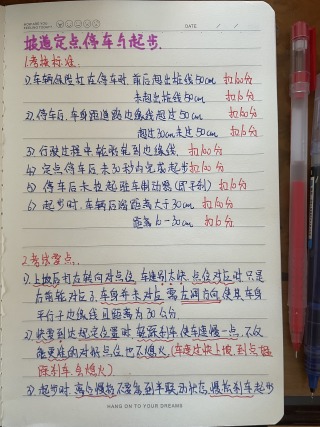 DATE
坡道定点停车与起步.
1.考核标准.
1) 车辆保险杠在停车时, 前后超出桩线50cm 扣100分
未超出桩线50cm 扣10分
2) 停车后, 车身距道路边缘线超过50cm 扣100分
超过30cm未过50cm 扣10分
3) 行驶过程中, 轮胎轧到边缘线. 扣100分
4) 定点停车后, 未30秒内完成起步 扣100分
5) 停车后未拉起驻车制动器(即手刹) 扣10分
6) 起步时, 车辆后溜距离大于30cm 扣100分
距离10-30cm 扣10分
2.考试要点.
1) 上坡后打左转向对点位, 车速别太快. 点位对应时只是
右前轮对应了, 车身并未对应 需左调方向 使且车身
平行于边缘线且距离为30公分
2) 快要到达规定位置时, 轻踩刹车使车速慢一点, 不仅
能更准的对状点位也不熄火 (车速过快上坡, 到点猛
踩刹车会熄火)
3) 起步时, 离合慢抬不要急 到半联动状态, 慢松刹车起步
HANG ON TO YOUR DREAMS